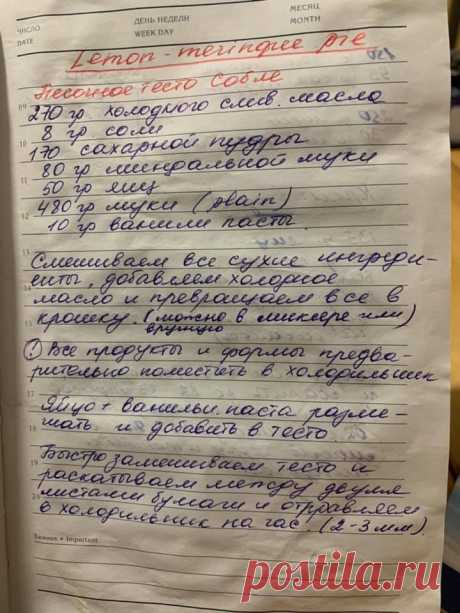 ЧИСЛО
DATE
ДЕНЬ НЕДЕЛИ
WEEK DAY
МЕСЯЦ
MONTH
Lemon-meringue pie
Песочное тесто Сабле
270 гр холодного слив. масла
8 гр соли
170 сахарной пудры
80 гр миндальной муки
50 гр яиц
480 гр муки (plain)
10 гр ванили пасты.
Смешиваем все сухие ингреди-
енты, добавляем холодное
масло и превращаем все в
крошку. (можно в миксере или
вручную)
! Все продукты и формы предва-
рительно поместить в холодильник
Яйцо + ванильн. паста разме-
шать и добавить в тесто.
Быстро замешиваем тесто и
раскатываем между двумя
листами бумаги и отправляем
в холодильник на час. (2-3 мм).
Важное • Important
postila.ru